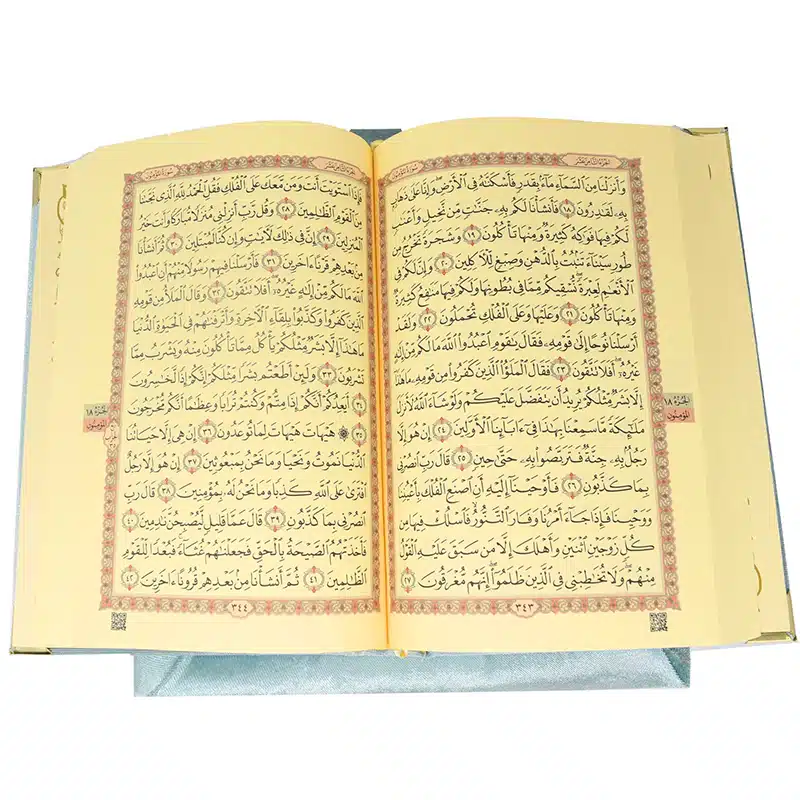 الجزء الثامن عشر
سورة المؤمنون
وَأَنزَلْنَا مِنَ ٱلسَّمَآءِ مَآءًۢ بِقَدَرٍ فَأَسْكَنَّـٰهُ فِى ٱلْأَرْضِ ۖ وَإِنَّا عَلَىٰ ذَهَابٍۭ
بِهِۦ لَقَـٰدِرُونَ ١٨ فَأَنشَأْنَا لَكُم بِهِۦ جَنَّـٰتٍ مِّن نَّخِيلٍ وَأَعْنَـٰبٍ
لَّكُمْ فِيهَا فَوَٰكِهُ كَثِيرَةٌ وَمِنْهَا تَأْكُلُونَ ١٩ وَشَجَرَةً تَخْرُجُ مِن
طُورِ سَيْنَآءَ تَنۢبُتُ بِٱلدُّهْنِ وَصِبْغٍ لِّلْـَٔاكِلِينَ ٢٠ وَإِنَّ لَكُمْ فِى
ٱلْأَنْعَـٰمِ لَعِبْرَةً ۖ نُّسْقِيكُم مِّمَّا فِى بُطُونِهَا وَلَكُمْ فِيهَا مَنَـٰفِعُ كَثِيرَةٌ
وَمِنْهَا تَأْكُلُونَ ٢١ وَعَلَيْهَا وَعَلَى ٱلْفُلْكِ تُحْمَلُونَ ٢٢ وَلَقَدْ
أَرْسَلْنَا نُوحًا إِلَىٰ قَوْمِهِۦ فَقَالَ يَـٰقَوْمِ ٱعْبُدُوا۟ ٱللَّهَ مَا لَكُم مِّنْ إِلَـٰهٍ
غَيْرُهُۥٓ ۖ أَفَلَا تَتَّقُونَ ٢٣ فَقَالَ ٱلْمَلَؤُا۟ ٱلَّذِينَ كَفَرُوا۟ مِن قَوْمِهِۦ مَا هَـٰذَآ
إِلَّا بَشَرٌ مِّثْلُكُمْ يُرِيدُ أَن يَتَفَضَّلَ عَلَيْكُمْ وَلَوْ شَآءَ ٱللَّهُ لَأَنزَلَ
مَلَـٰٓئِكَةً مَّا سَمِعْنَا بِهَـٰذَا فِىٓ ءَابَآئِنَا ٱلْأَوَّلِينَ ٢٤ إِنْ هُوَ إِلَّا
رَجُلٌۢ بِهِۦ جِنَّةٌ فَتَرَبَّصُوا۟ بِهِۦ حَتَّىٰ حِينٍ ٢٥ قَالَ رَبِّ ٱنصُرْنِى
بِمَا كَذَّبُونِ ٢٦ فَأَوْحَيْنَآ إِلَيْهِ أَنِ ٱصْنَعِ ٱلْفُلْكَ بِأَعْيُنِنَا
وَوَحْيِنَا فَإِذَا جَآءَ أَمْرُنَا وَفَارَ ٱلتَّنُّورُ ۙ فَٱسْلُكْ فِيهَا مِن
كُلٍّ زَوْجَيْنِ ٱثْنَيْنِ وَأَهْلَكَ إِلَّا مَن سَبَقَ عَلَيْهِ ٱلْقَوْلُ
مِنْهُمْ ۖ وَلَا تُخَـٰطِبْنِى فِى ٱلَّذِينَ ظَلَمُوٓا۟ ۖ إِنَّهُم مُّغْرَقُونَ ٢٧
٣٤٣
الجزء ١٨
المؤمنون
الجزء الثامن عشر
سورة المؤمنون
فَإِذَا ٱسْتَوَيْتَ أَنتَ وَمَن مَّعَكَ عَلَى ٱلْفُلْكِ فَقُلِ ٱلْحَمْدُ لِلَّهِ ٱلَّذِى نَجَّىٰنَا
مِنَ ٱلْقَوْمِ ٱلظَّـٰلِمِينَ ٢٨ وَقُل رَّبِّ أَنزِلْنِى مُنزَلًا مُّبَارَكًا وَأَنتَ خَيْرُ
ٱلْمُنزِلِينَ ٢٩ إِنَّ فِى ذَٰلِكَ لَـَٔايَـٰتٍ وَإِن كُنَّا لَمُبْتَلِينَ ٣٠ ثُمَّ أَنشَأْنَا
مِنۢ بَعْدِهِمْ قَرْنًا ءَاخَرِينَ ٣١ فَأَرْسَلْنَا فِيهِمْ رَسُولًا مِّنْهُمْ أَنِ ٱعْبُدُوا۟
ٱللَّهَ مَا لَكُم مِّنْ إِلَـٰهٍ غَيْرُهُۥٓ ۖ أَفَلَا تَتَّقُونَ ٣٢ وَقَالَ ٱلْمَلَأُ مِن قَوْمِهِ
ٱلَّذِينَ كَفَرُوا۟ وَكَذَّبُوا۟ بِلِقَآءِ ٱلْـَٔاخِرَةِ وَأَتْرَفْنَـٰهُمْ فِى ٱلْحَيَوٰةِ ٱلدُّنْيَا
مَا هَـٰذَآ إِلَّا بَشَرٌ مِّثْلُكُمْ يَأْكُلُ مِمَّا تَأْكُلُونَ مِنْهُ وَيَشْرَبُ مِمَّا
تَشْرَبُونَ ٣٣ وَلَئِنْ أَطَعْتُم بَشَرًا مِّثْلَكُمْ إِنَّكُمْ إِذًا لَّخَـٰسِرُونَ
٣٤ أَيَعِدُكُمْ أَنَّكُمْ إِذَا مِتُّمْ وَكُنتُمْ تُرَابًا وَعِظَـٰمًا أَنَّكُم مُّخْرَجُونَ
٣٥ ۞ هَيْهَاتَ هَيْهَاتَ لِمَا تُوعَدُونَ ٣٦ إِنْ هِىَ إِلَّا حَيَاتُنَا
ٱلدُّنْيَا نَمُوتُ وَنَحْيَا وَمَا نَحْنُ بِمَبْعُوثِينَ ٣٧ إِنْ هُوَ إِلَّا رَجُلٌ
ٱفْتَرَىٰ عَلَى ٱللَّهِ كَذِبًا وَمَا نَحْنُ لَهُۥ بِمُؤْمِنِينَ ٣٨ قَالَ رَبِّ
ٱنصُرْنِى بِمَا كَذَّبُونِ ٣٩ قَالَ عَمَّا قَلِيلٍ لَّيُصْبِحُنَّ نَـٰدِمِينَ ٤٠
فَأَخَذَتْهُمُ ٱلصَّيْحَةُ بِٱلْحَقِّ فَجَعَلْنَـٰهُمْ غُثَآءً ۚ فَبُعْدًا لِّلْقَوْمِ
ٱلظَّـٰلِمِينَ ٤١ ثُمَّ أَنشَأْنَا مِنۢ بَعْدِهِمْ قُرُونًا ءَاخَرِينَ ٤٢
٣٤٤
الجزء ١٨
المؤمنون